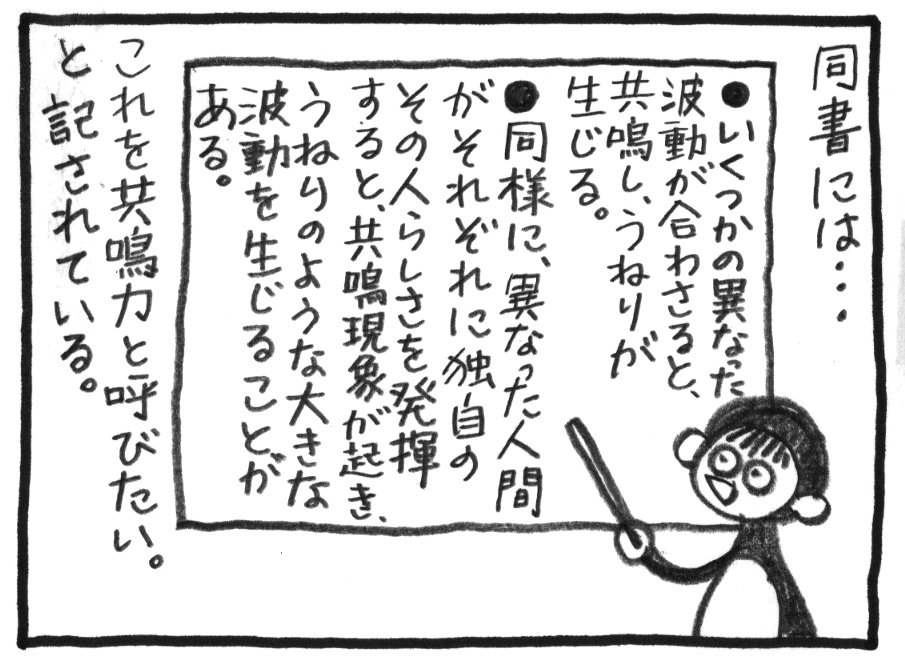 同書には・・・
●いくつかの異なった
波動が合わさると、
共鳴し、うねりが
生じる。
●同様に、異なった人間
がそれぞれに独自の
その人らしさを発揮
すると、共鳴現象が起き、
うねりのような大きな
波動を生じることが
ある。
これを共鳴力と呼びたい。
と記されている。